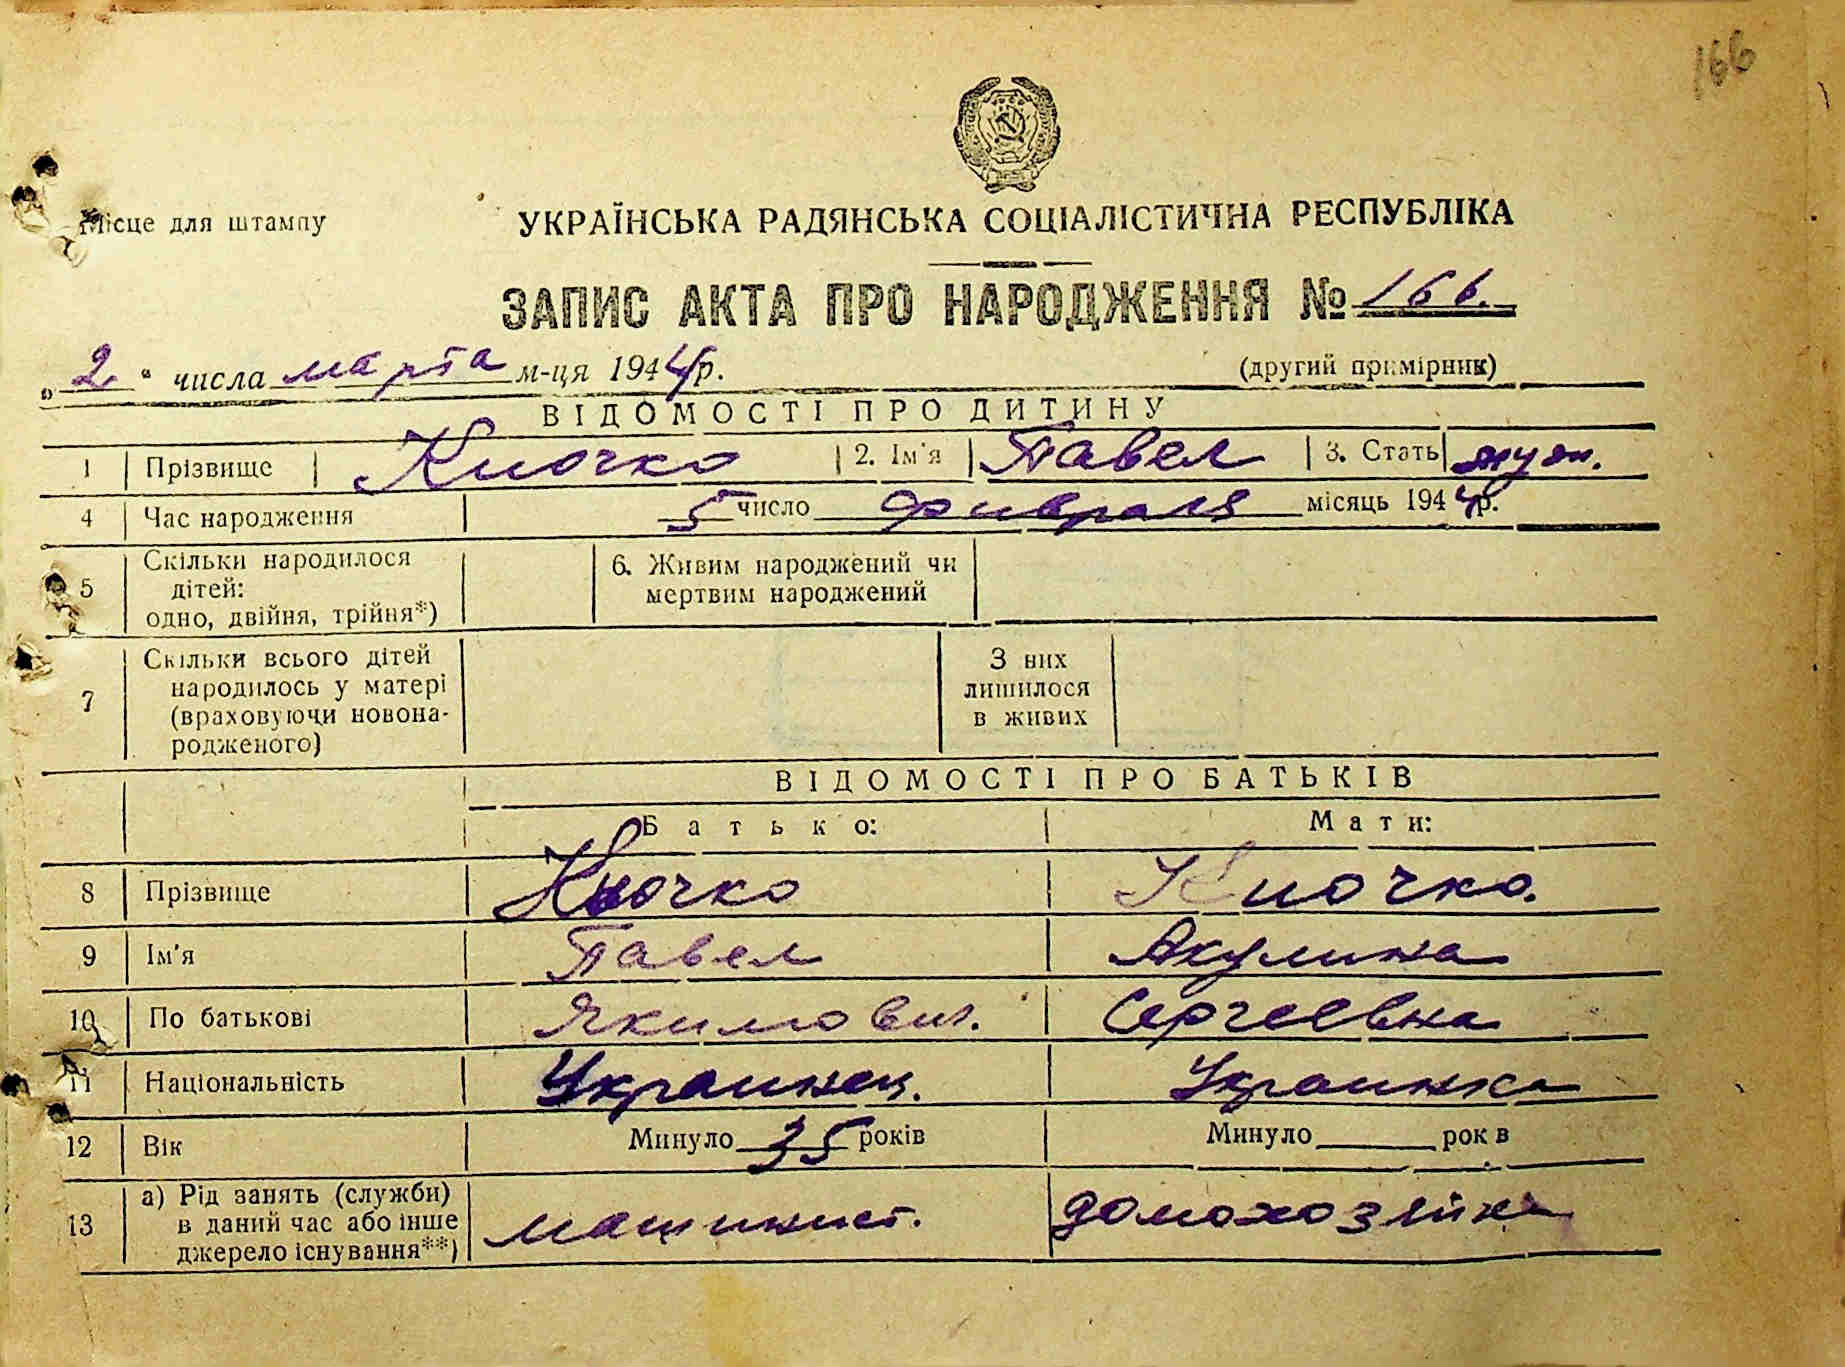 166
Місце для штампу
УКРАЇНСЬКА РАДЯНСЬКА СОЦІАЛІСТИЧНА РЕСПУБЛІКА
ЗАПИС АКТА ПРО НАРОДЖЕННЯ № 166.
„2“ числа марта м-ця 1944 р.
(другий примірник)
ВІДОМОСТІ ПРО ДИТИНУ
1 Прізвище Киочко 2. Ім'я Павел 3. Стать муж.
4 Час народження 5 число февраля місяць 1944 р.
5 Скільки народилося дітей: одно, двійня, трійня*) 6. Живим народжений чи мертвим народжений
7 Скільки всього дітей народилось у матері (враховуючи новонародженого) З них лишилося в живих
ВІДОМОСТІ ПРО БАТЬКІВ
Батько: Мати:
8 Прізвище Киочко Киочко.
9 Ім'я Павел Акулина
10 По батькові Якимович. Сергеевна
11 Національність Украинец. Украинка
12 Вік Минуло 35 років Минуло рок в
13 а) Рід занять (служби) в даний час або інше джерело існування**) машинист. домохозяйка